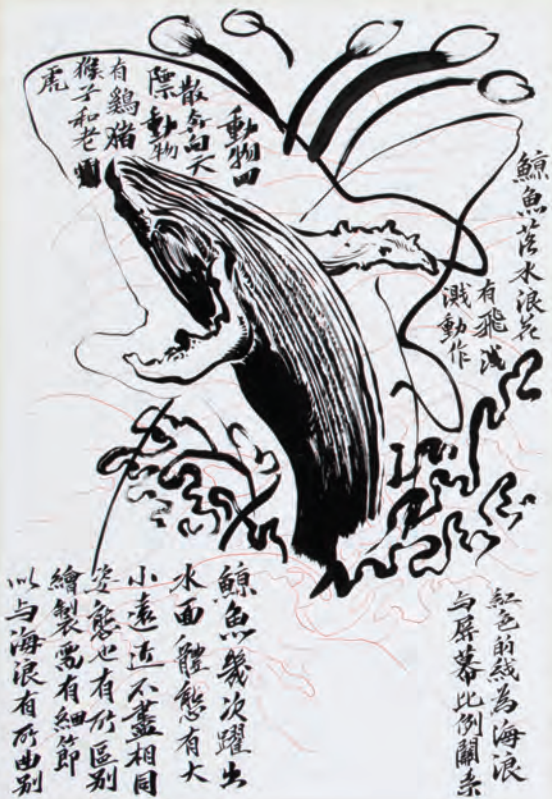 鯨魚落水浪花
有飛浅
溅動作
動物四
散奔向天
際動物
有鷄猪
猴子和老
虎
紅色的綫為海浪
与屏幕比例關系
鯨魚幾次躍出
水面體態有大
小遠近不盡相同
姿態也有所區别
繪製需有細節
以与海浪有所曲别